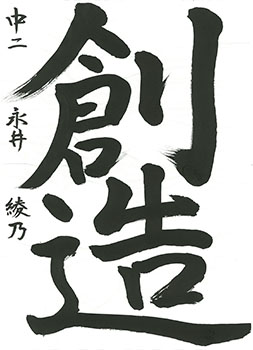 創造
中二 永井 綾乃